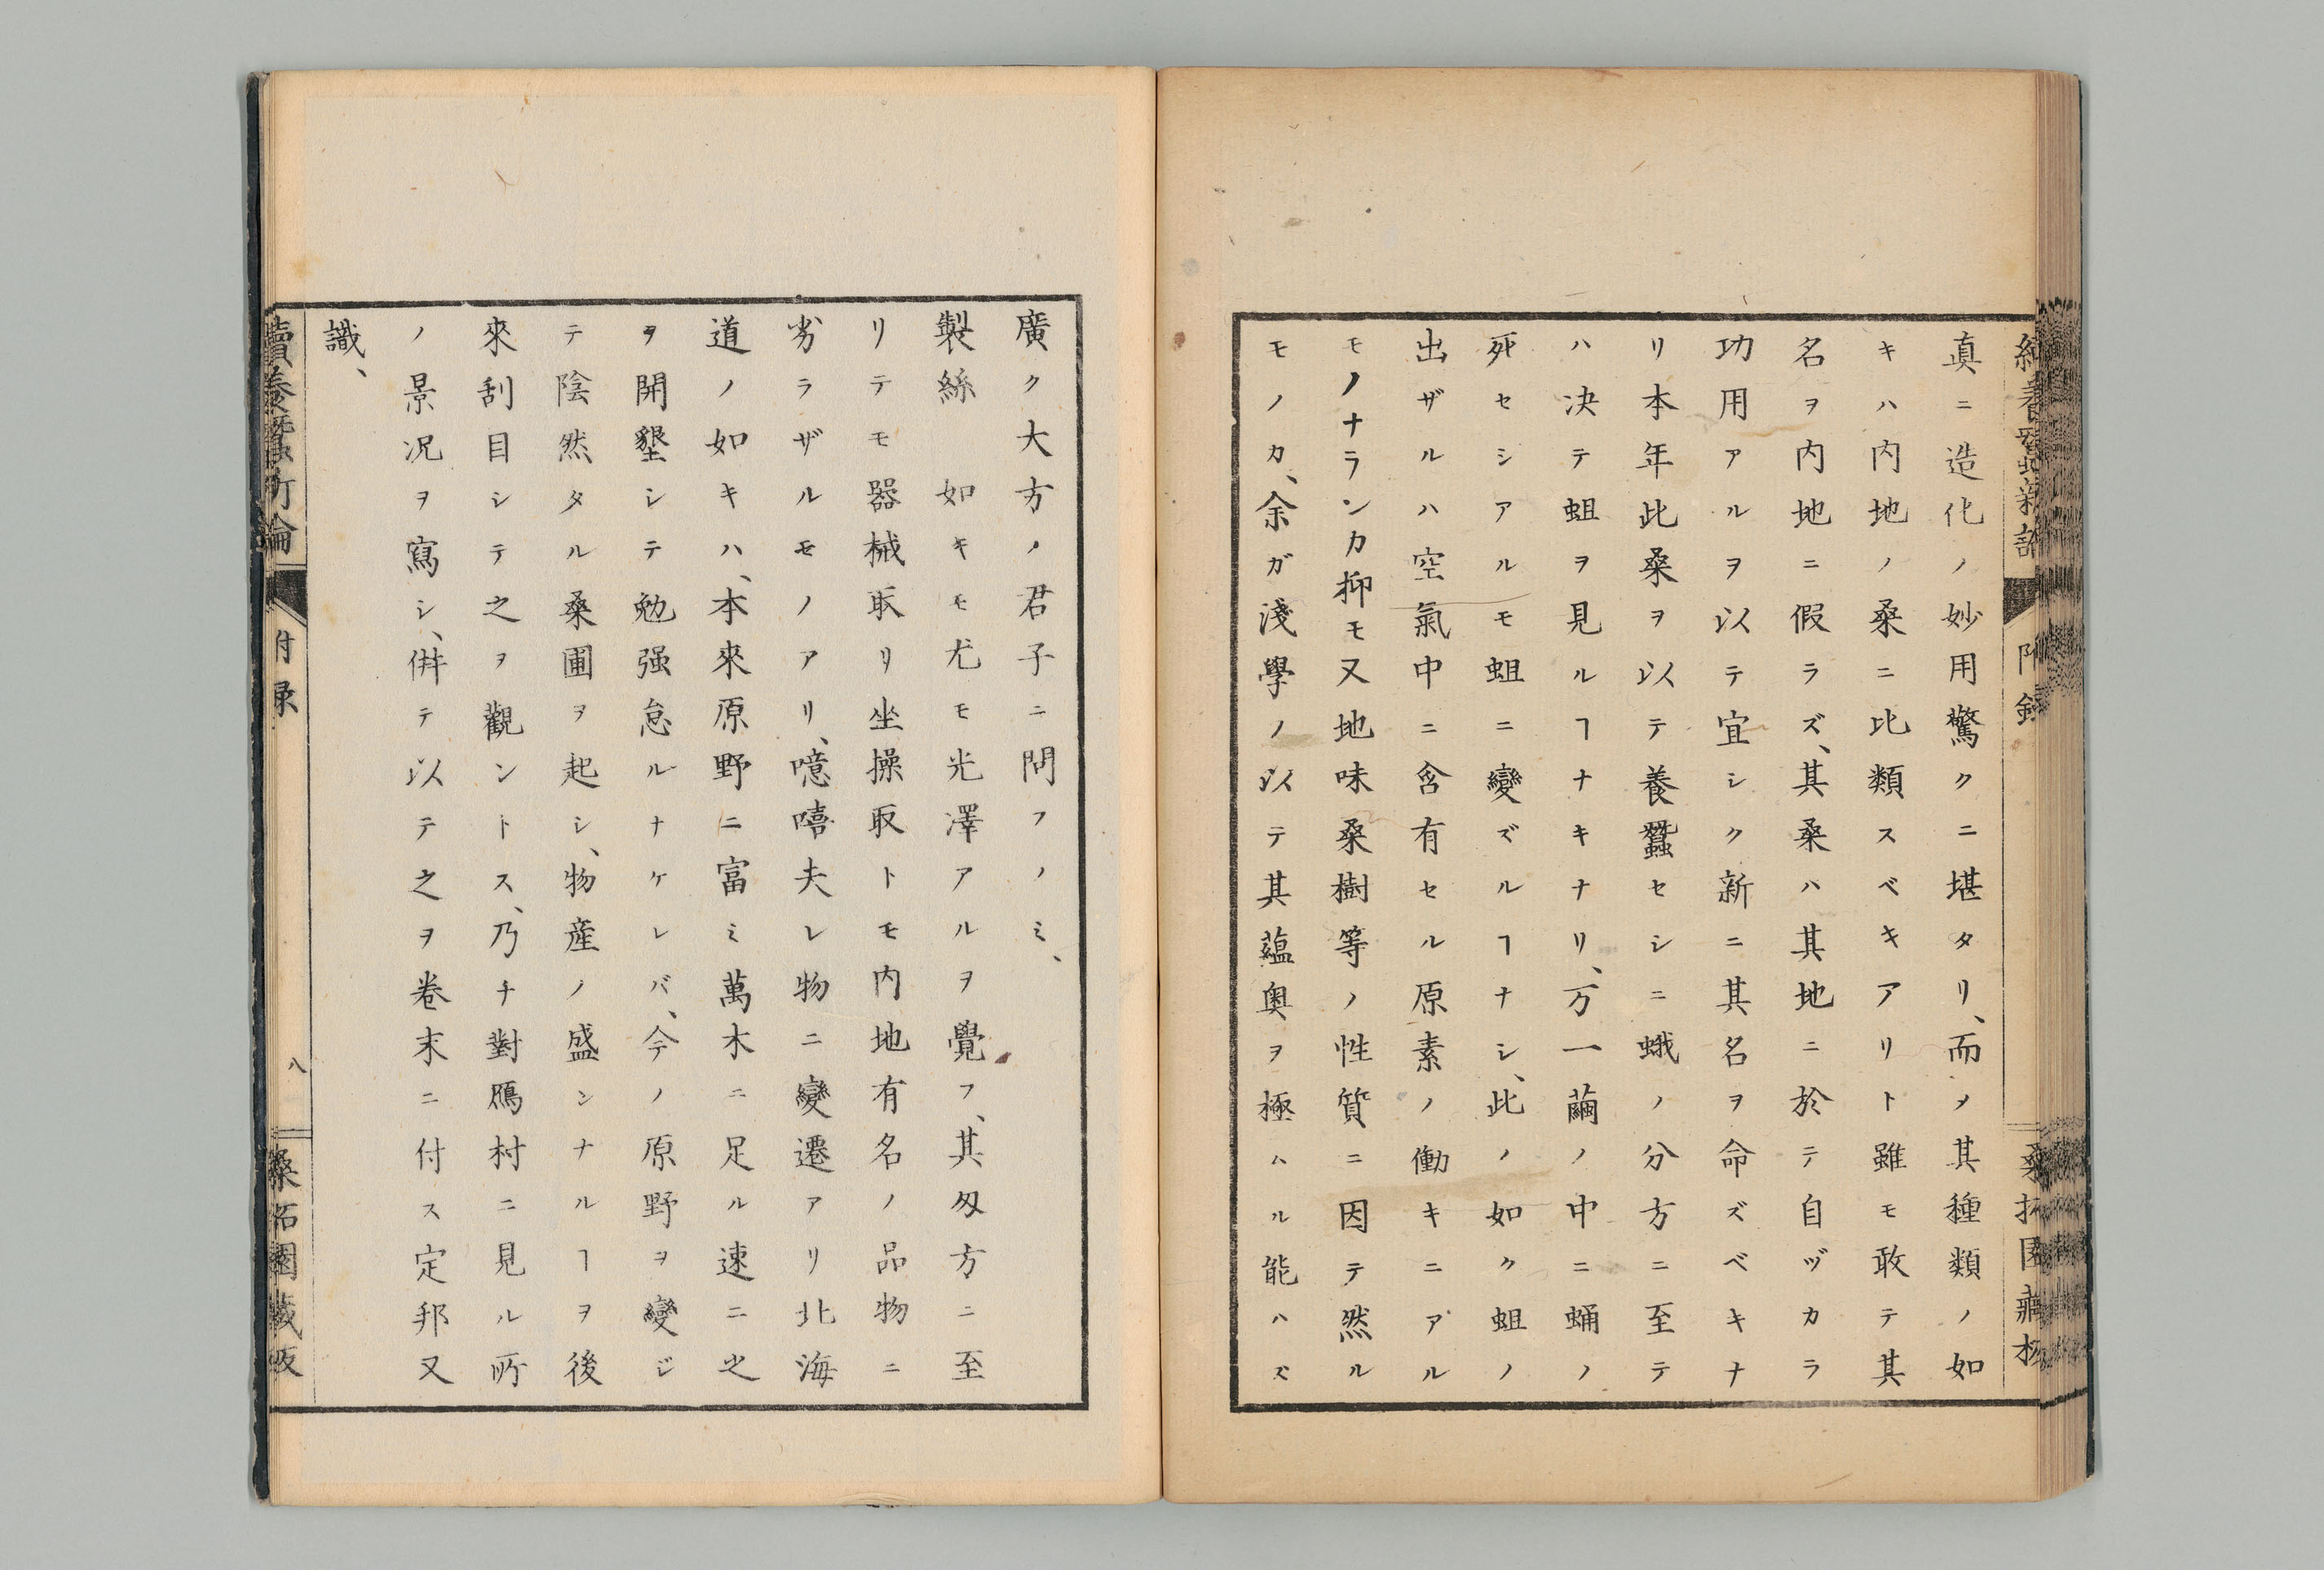 真ニ造化ノ妙用驚クニ堪タリ、而メ其種類ノ如
キハ内地ノ桑ニ比類スベキアリト雖モ敢テ其
名ヲ内地ニ假ラズ、其桑ハ其地ニ於テ自ヅカラ
功用アルヲ以テ宜シク新ニ其名ヲ命ズベキナ
リ本年此桑ヲ以テ養蠶セシニ蛾ノ分方ニ至テ
ハ决テ蛆ヲ見ルヿナキナリ、万一繭ノ中ニ蛹ノ
死セシアルモ蛆ニ變ズルヿナシ、此ノ如ク蛆ノ
出ザルハ空氣中ニ含有セル原素ノ働キニアル
モノナランカ抑モ又地味桑樹等ノ性質ニ因テ然ル
モノカ、余ガ淺學ノ以テ其蘊奥ヲ極ハル能ハズ
廣ク大方ノ君子ニ問フノミ、
製絲 如キモ尤モ光澤アルヲ覺フ、其匁方ニ至
リテモ器械取リ坐操取トモ内地有名ノ品物ニ
劣ラザルモノアリ、噫嘻夫レ物ニ變遷アリ北海
道ノ如キハ、本來原野ニ富ミ萬木ニ足ル速ニ之
ヲ開墾シテ勉强怠ルナケレバ、今ノ原野ヲ變ジ
テ陰然タル桑圃ヲ起シ、物産ノ盛ンナルヿヲ後
來刮目シテ之ヲ觀ントス、乃チ對鴈村ニ見ル所
ノ景况ヲ寫シ、倂テ以テ之ヲ卷末ニ付ス定邦又
識、
附録
八
桑拓園藏版